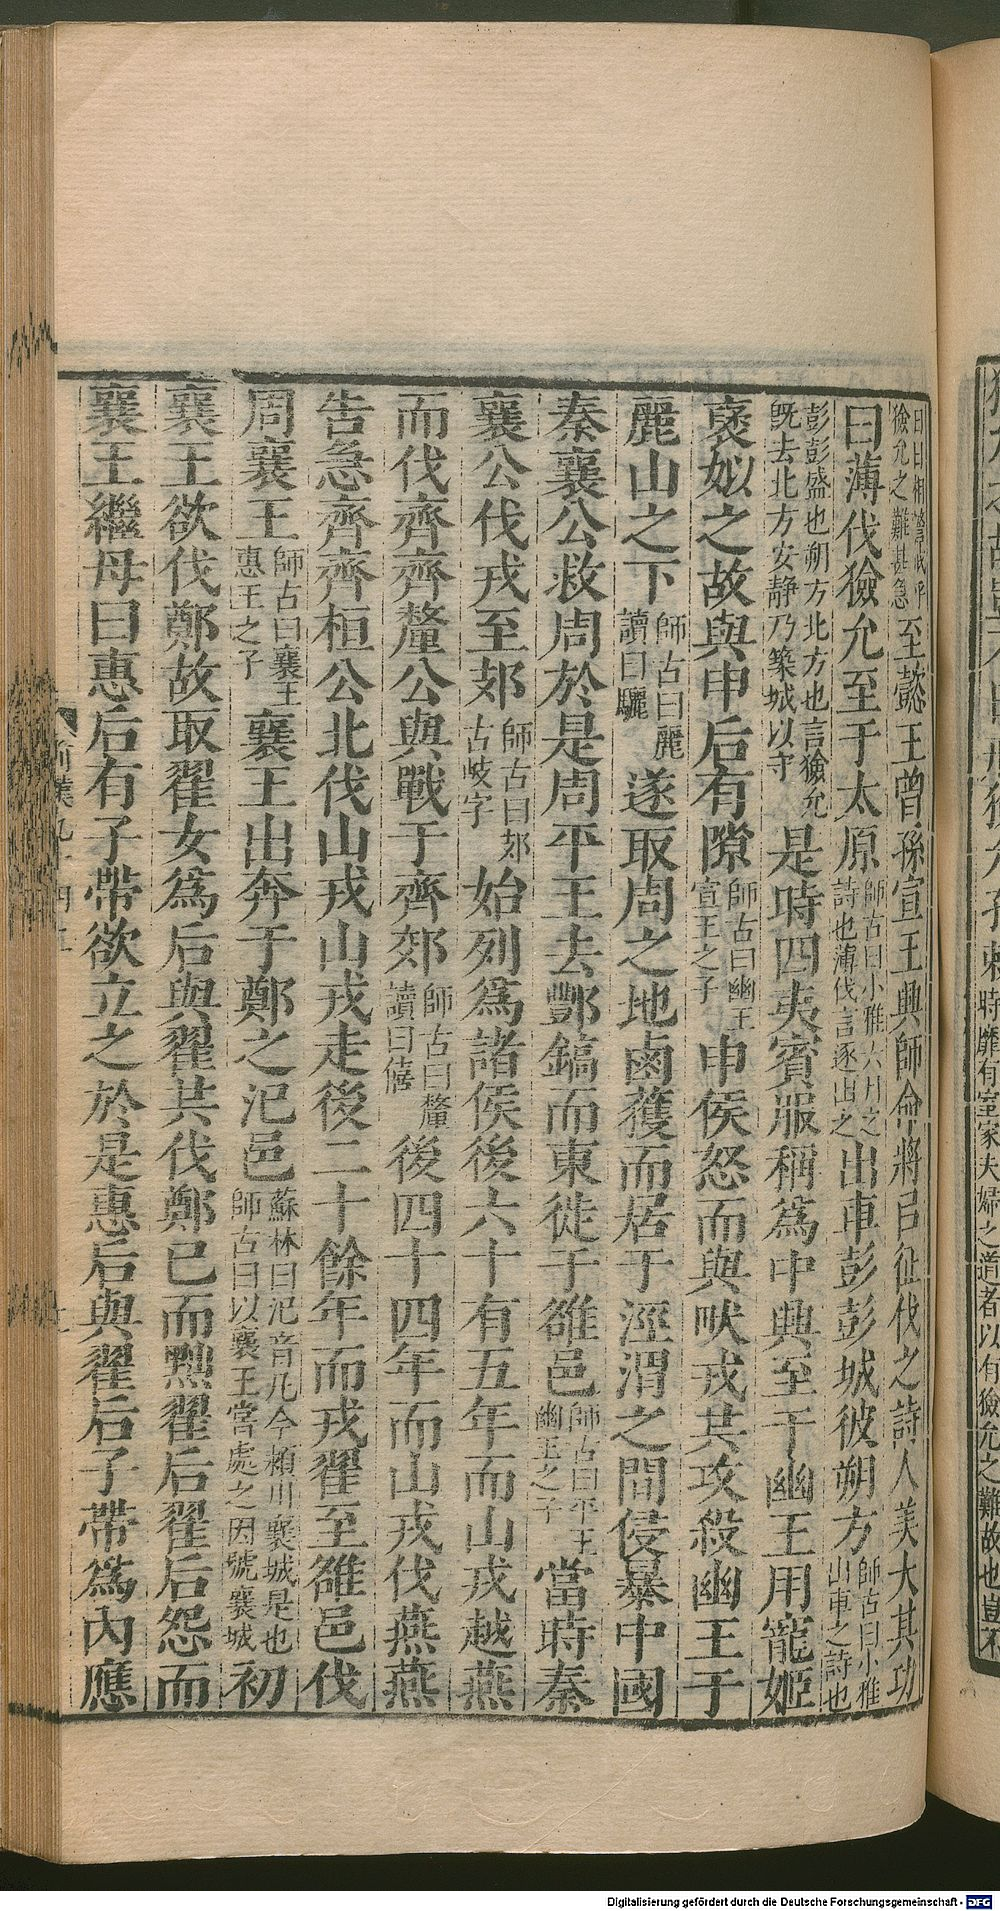 曰日相警戒乎獫允之難甚急至懿王曾孫宣王興師命將㠯征伐之詩人美大其功
曰薄伐獫允至于太原師古曰小雅六月之詩也薄伐言逐出之出車彭彭城彼朔方師古曰小雅出車之詩也
彭彭盛也朔方北方也言獫允既去北方安靜乃築城以守是時四夷賓服稱爲中興至于幽王用寵姬
襃姒之故與申后有隙師古曰幽王宣王之子申侯怒而與畎戎共攻殺幽王于
麗山之下師古曰麗讀曰驪遂取周之地鹵獲而居于涇渭之間侵暴中國
秦襄公救周於是周平王去酆鎬而東徙于雒邑師古曰平王幽王之子當時秦
襄公伐戎至郊師古曰郊古岐字始列爲諸侯後六十有五年而山戎越燕
而伐齊齊釐公與戰于齊郊師古曰釐讀曰僖後四十四年而山戎伐燕燕
告急齊齊桓公北伐山戎山戎走後二十餘年而戎翟至雒邑伐
周襄王師古曰襄王惠王之子襄王出奔于鄭之氾邑蘇林曰氾音凡今潁川襄城是也師古曰以襄王嘗處之因號襄城初
襄王欲伐鄭故取翟女爲后與翟共伐鄭已而黜翟后翟后怨而
襄王繼母曰惠后有子帶欲立之於是惠后與翟后子帶爲內應
時靡有室家夫婦之道者以有獫允之難故也豈不
Digitalisierung gefördert durch die Deutsche Forschungsgemeinschaft - DFG